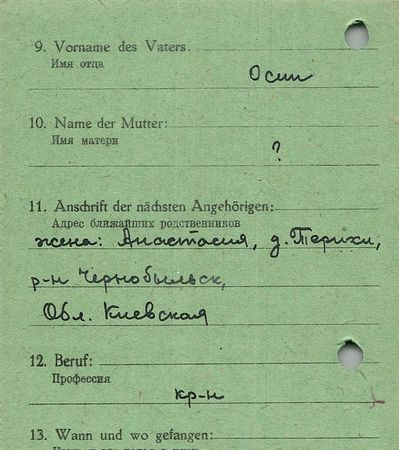 9. Vorname des Vaters.
Имя отца
Осип
10. Name der Mutter:
Имя матери
?
11. Anschrift der nächsten Angehörigen:
Адрес ближайших родственников
жена: Анастасия, д. Терихи,
р-н Чернобыльск,
Обл. Киевская
12. Beruf:
Профессия
кр-н
13. Wann und wo gefangen: